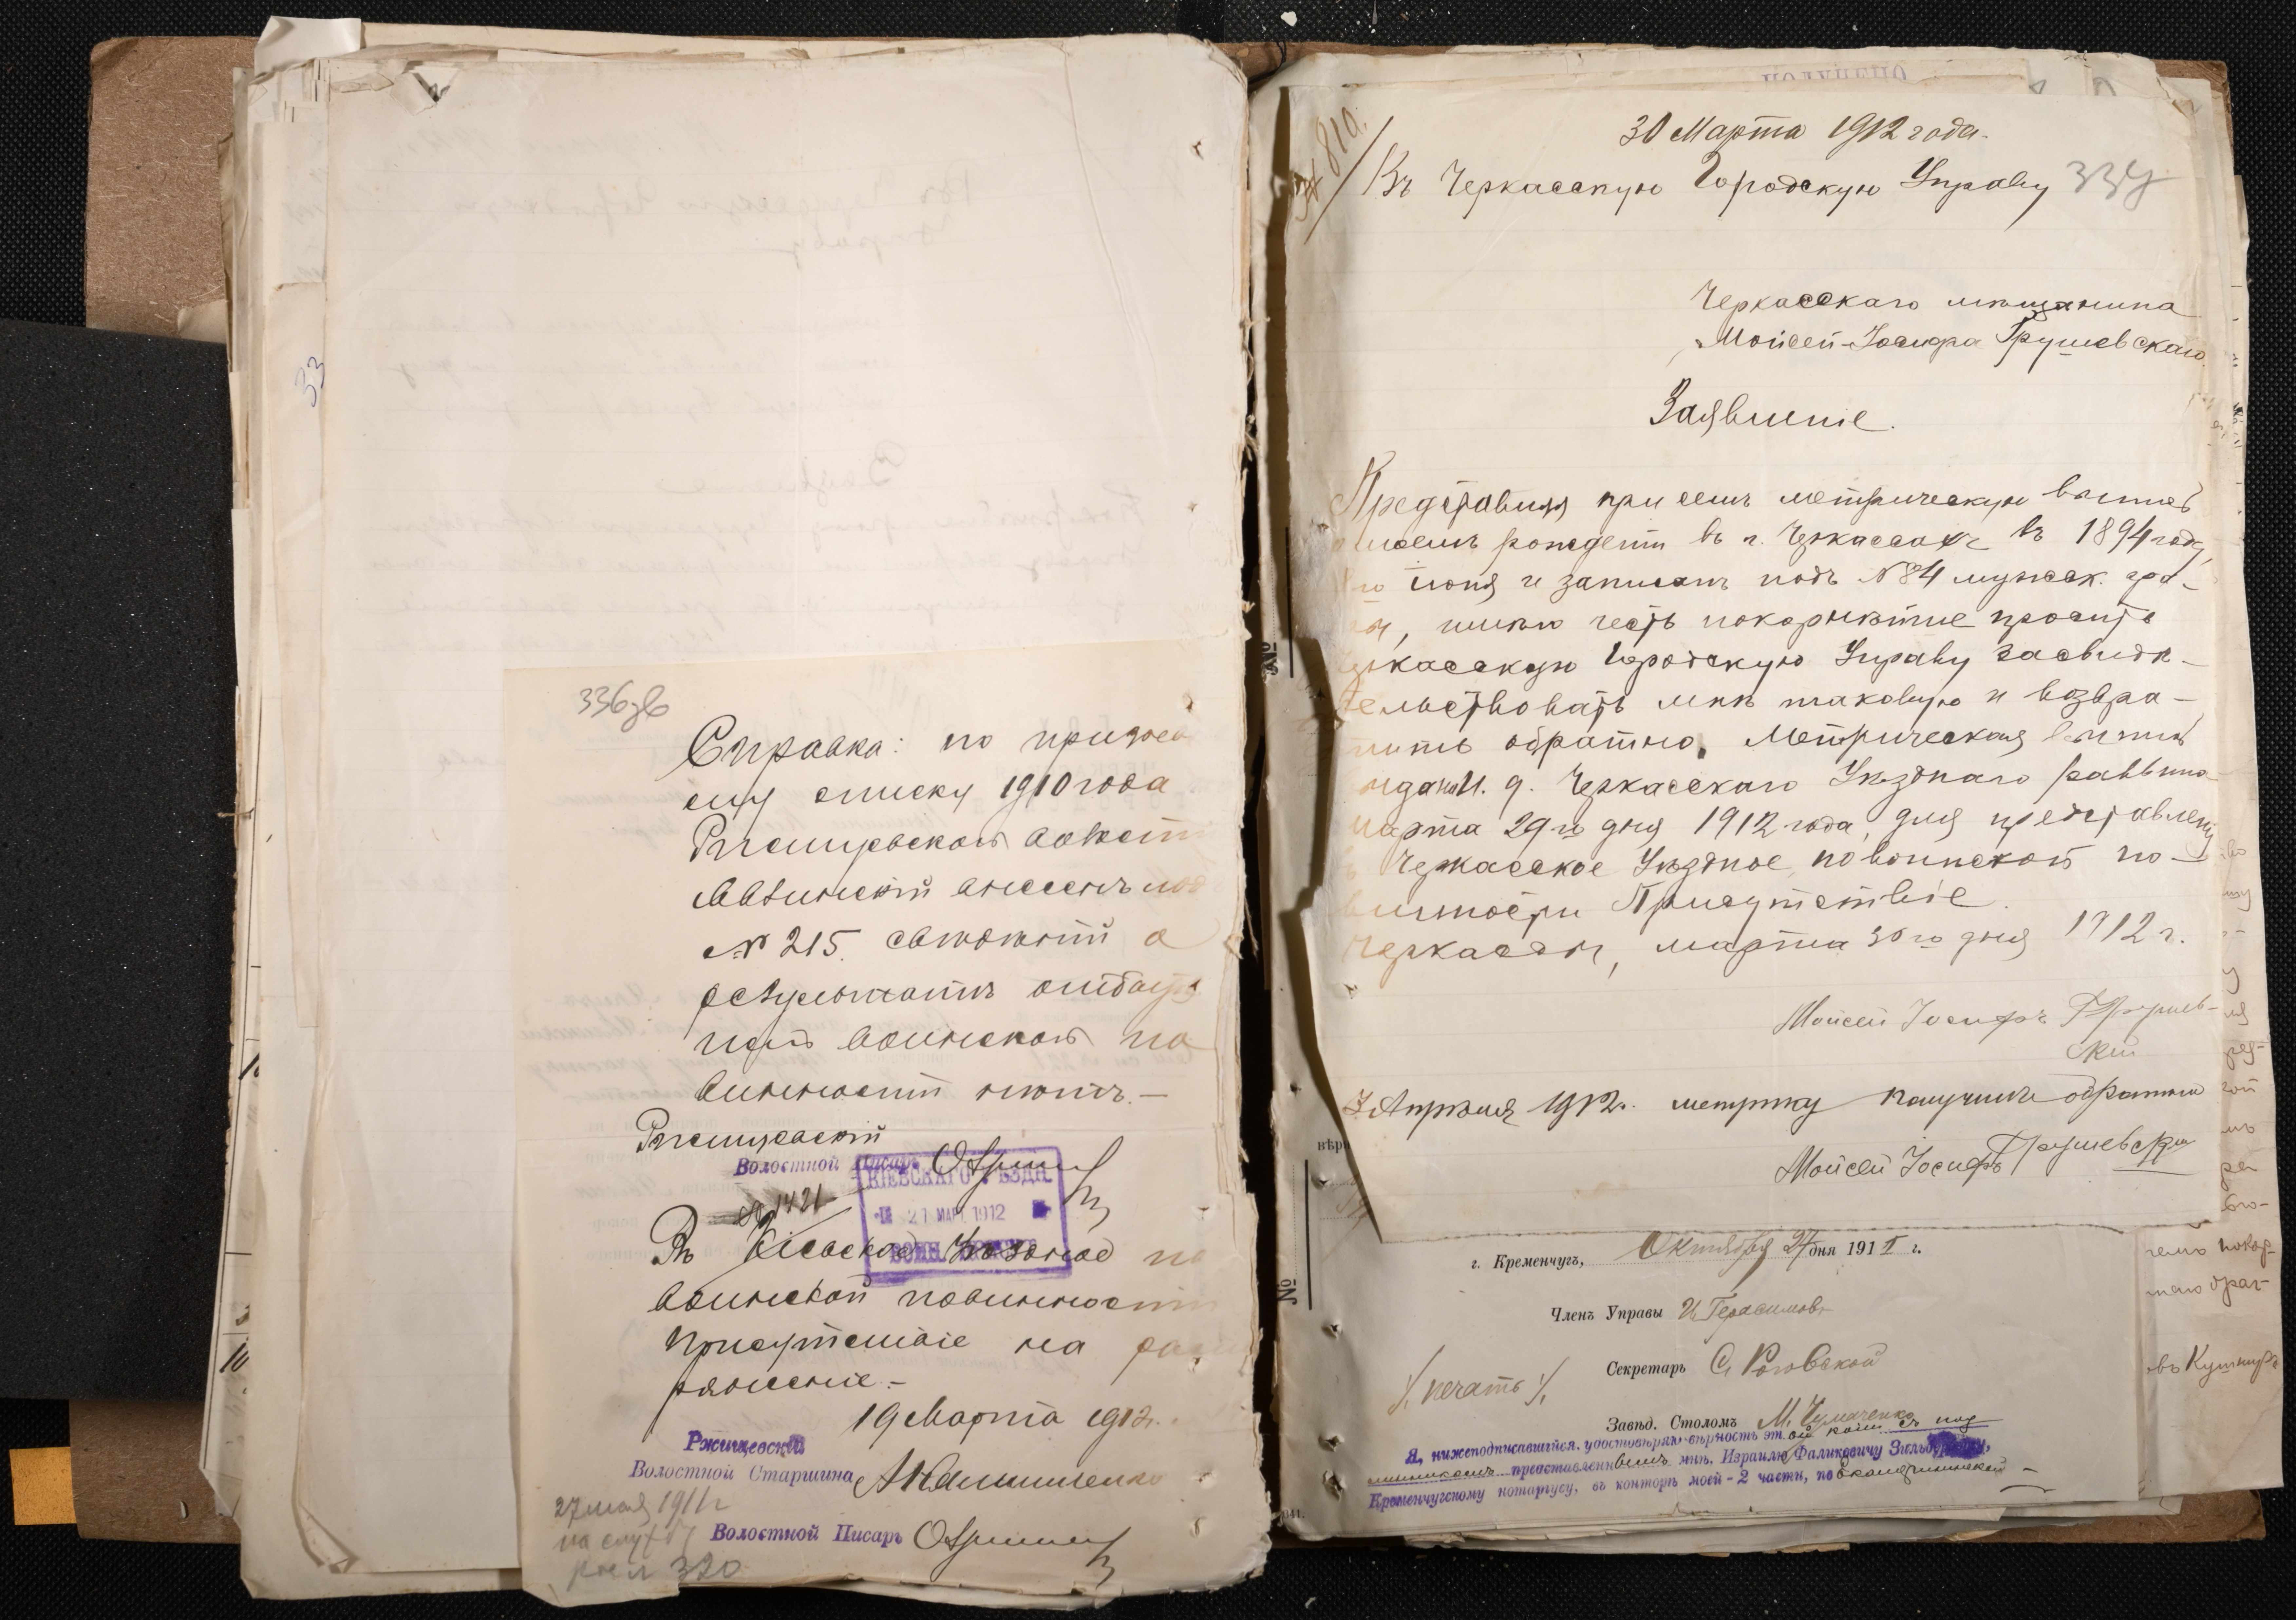 33
336 об
Справка: по призыв
ому списку 1910 года
Ржищевской волости
внесенъ под
№ 215. свѣдѣній о
результатѣ отбыту
воинской по
винности нѣтъ.—
Ржищевскій
Волостной Писарь
№ 1421
КІЕВСКАГО УѢЗДН.
21 МАР. 1912
ВОИН.
Въ Кіевское Уѣздное по
воинской повинности
Присутствіе на рас
ряженіе.—
19 Марта 1912 г.
Ржищевскій
Волостной Старшина
27 мая 1911 г
на службу
Волостной Писарь
320
30 Марта 1912 года.
Въ Черкасскую Городскую Управу 337
Черкасскаго мѣщанина
Мойсей-Іосифа Грушевскаго
Заявленіе.
Представляя при семъ метрическую выпись
о моемъ рожденіи въ г. Черкассахъ въ 1894 году,
іюня и записанъ подъ № 84 мужск. гра-
фы, имѣю честь покорнѣйше просить
Черкасскую Городскую Управу засвидѣ-
тельствовать мнѣ таковую и возвра-
тить обратно. Метрическая выпись
выдана И. д. Черкасскаго Уѣзднаго раввина
марта 29 го дня 1912 года, для представленія
въ Черкасское Уѣздное по воинской по-
винности Присутствіе.
Черкассы, марта 30 го дня 1912 г.
Мойсей Іосифъ Грушев-
скій
3 Апрѣля 1912 г. метрику получилъ обратно
Мойсей Іосифъ Грушевскій
г. Кременчугъ, Октября 27 дня 1911 г.
Членъ Управы И. Герасимовъ
Секретарь С. Роговской
/ печать /
Завѣд. Столомъ М. Чумаченко
Я, нижеподписавшійся, удостовѣряю вѣрность этой копіи съ под
линникомъ представленнымъ мнѣ, Израилю Фаликовичу
Кременчугскому нотаріусу, въ конторѣ моей - 2 части, по Екатерининской
№
№